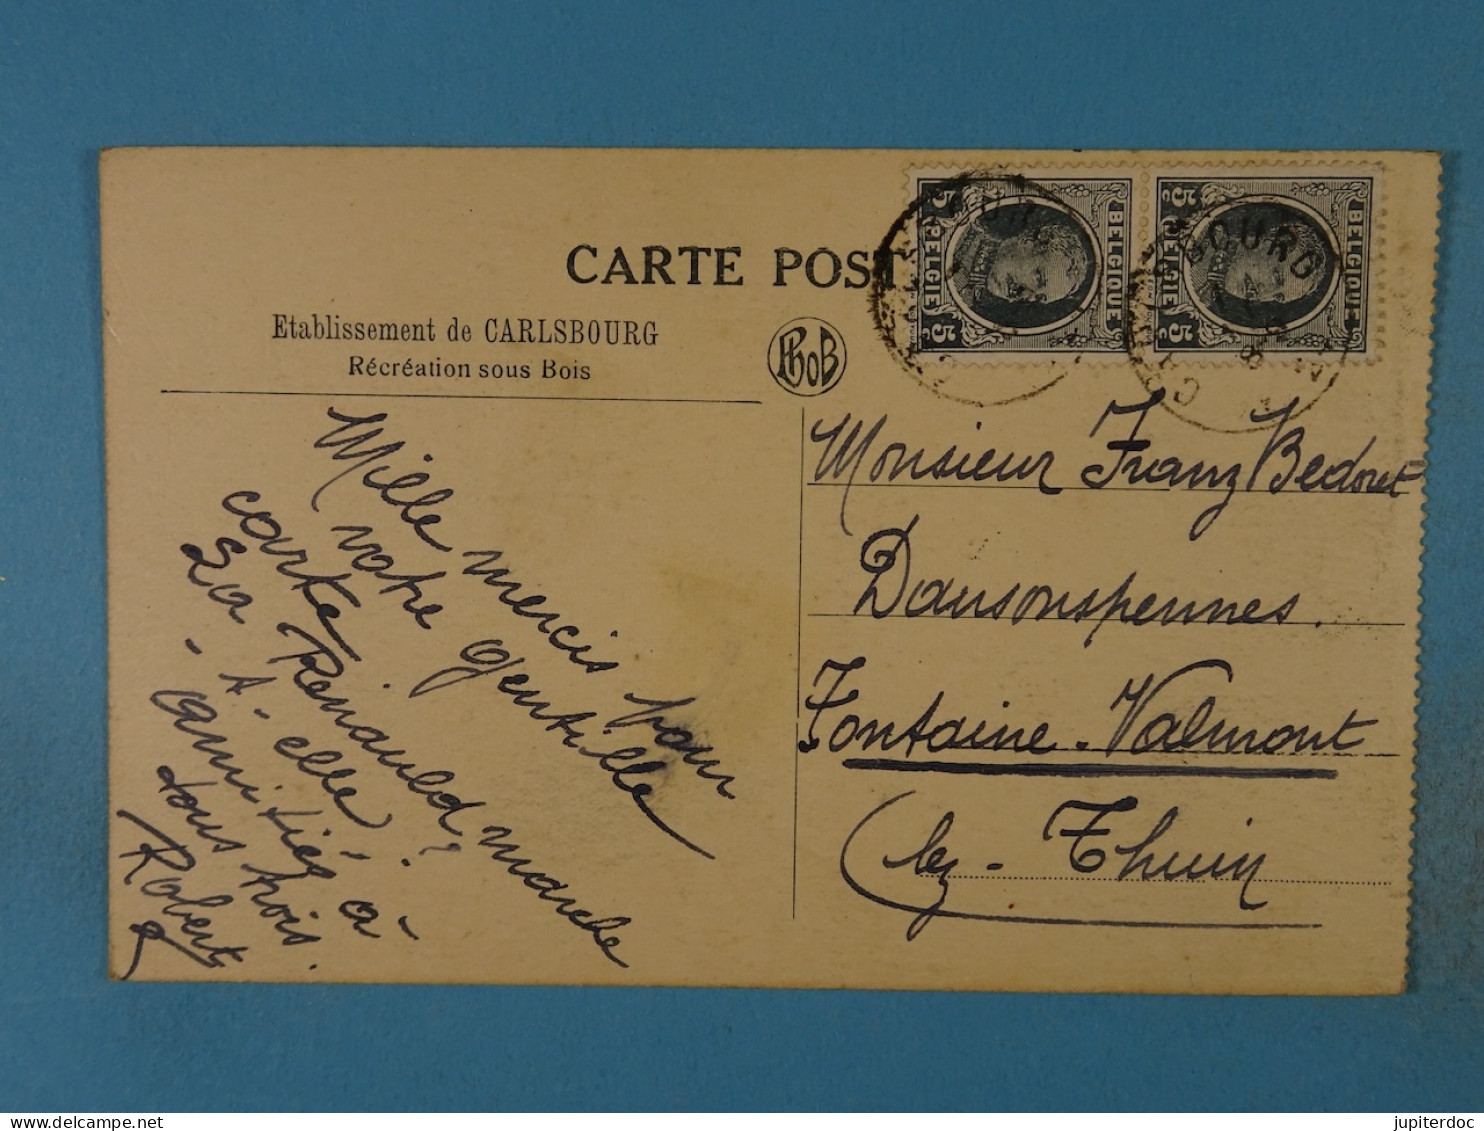 CARTE POST
Etablissement de CARLSBOURG
Récréation sous Bois
PhoB
5c BELGIE 5c
BELGIQUE
5c BELGIE 5c
BELGIQUE
Mille mercis pour
votre gentille
carte Renauld marche
La
-t-elle?
amitiés à
tous trois.
Robert
Monsieur Franz Bedoret
Dansonspennes.
Fontaine-Valmont
(lez-Thuin
jupiterdoc